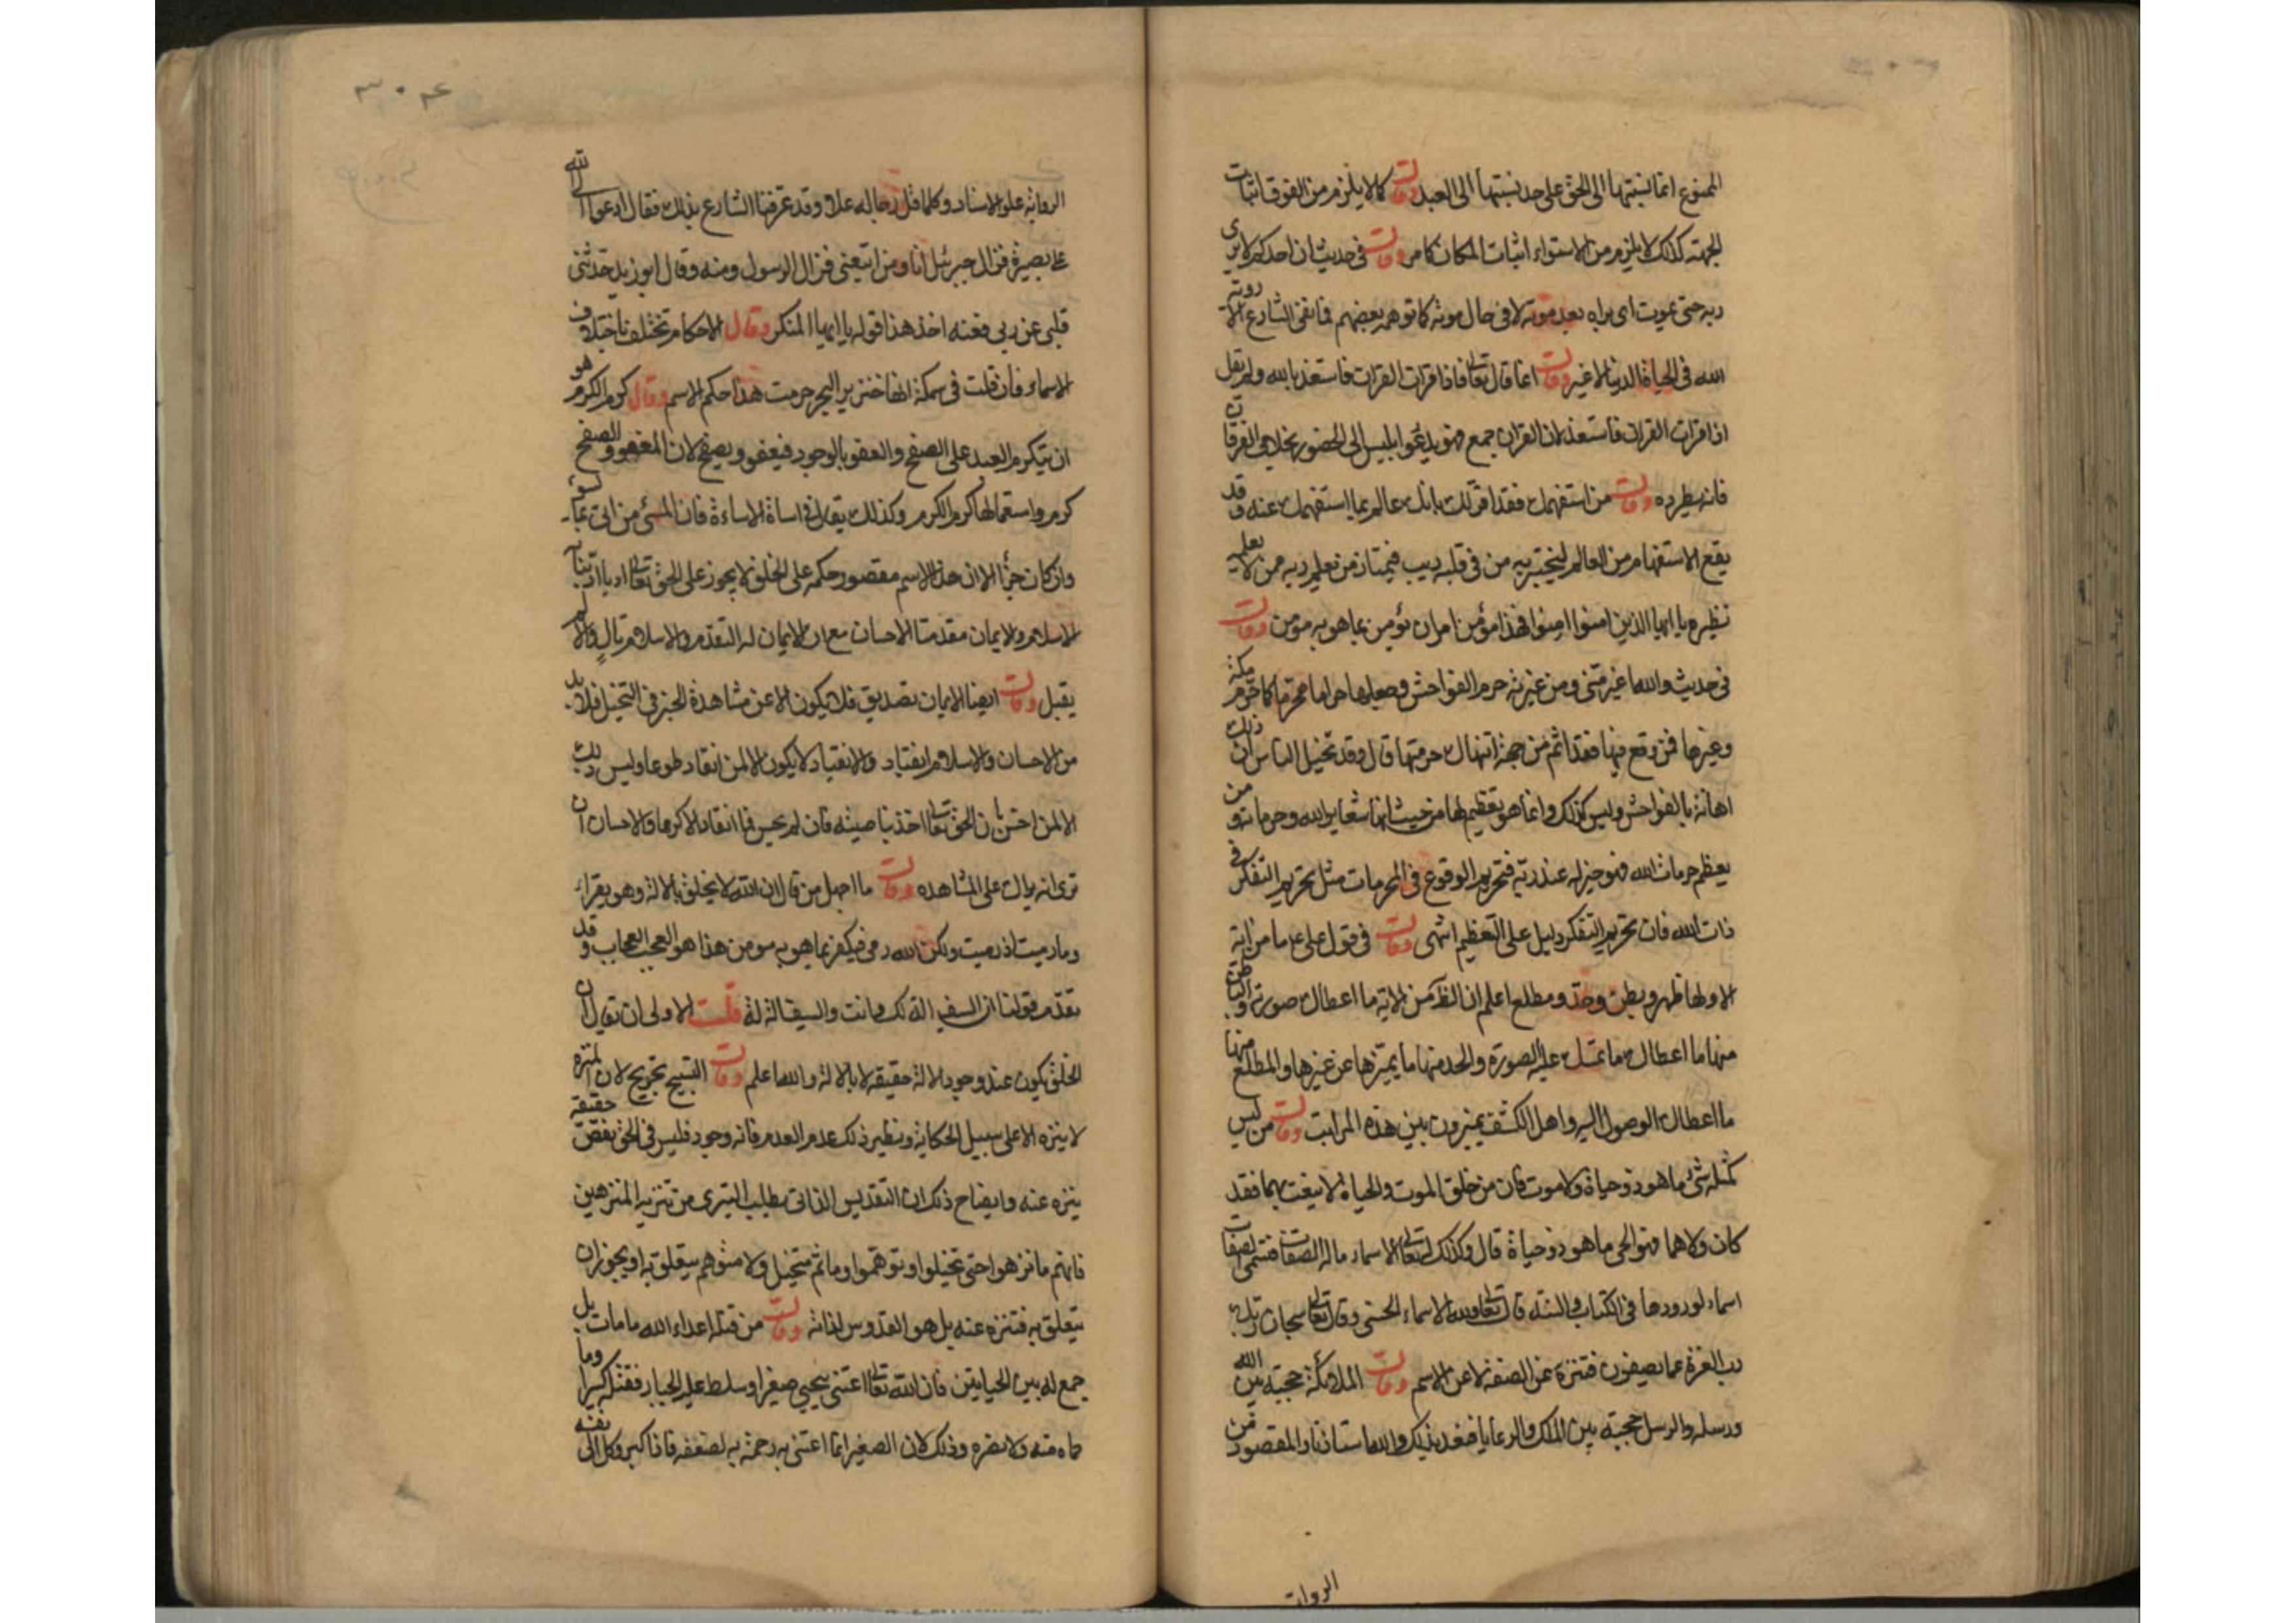 الممنوع انما نسبتها الى الحق على حد نسبتها الى العبد وقال كما لا يلزم من الفوق اثبات
الجهة كذلك لا يلزم من الاستواء اثبات المكان كما مر وقال في حديث ان احدكم لا يرى
ربه حتى يموت اى يراه بعد موته لا في حال موته كما توهمه بعضهم فما نفى الشارع الا روية
الله في الحياة الدنيا لا غير وقال انما قال تعالى فاذا قرات القرات فاستعذ بالله ولم يقل
اذا قرات الفرقان فاستعذ لان القران جمع فهو يدعوا ابليس الى الحضور بخلاف الفرقان
فانه يطرده وقال من استفهمك فقد اقر لك بانك عالم بما استفهمك عنه وقد
يقع الاستفهام من العالم ليختبر به من في قلبه ريب فيمتاز من تعلم ربه ممن لا يعلم
نظيره يا ايها الذين امنوا امنوا فهذا مؤمن امر ان يؤمن بما هو به مؤمن وقال
في حديث والله اغير منى ومن غيرته حرم الفواحش وجعلها حراما محرما كما حرم مكة
وغيرها فمن وقع فيها فقد اثم من جهة انتهاك حرمتها قال وقد تخيل الناس ان ذلك
اهانة بالفواحش وليس كذلك وانما هو تعظيم لها من حيث انها شعاير الله وحرماته ومن
يعظم حرمات الله فهو خير له عند ربه فتحريم الوقوع في المحرمات مثل تحريم التفكر في
ذات الله فان تحريم التفكر دليل على التعظيم انتهى وقال في قول على ما من اية
الا ولها ظهر وبطن وحد ومطلع اعلم ان الظهر من الاية ما اعطاك صورته والباطن
منها ما اعطاك ما تمسك عليه الصورة والحد منها ما يميزها عن غيرها والمطلع منها
ما اعطاك الوصول اليه واهل الكشف يميزون بين هذه المراتب وقال من ليس
كمثله شئ ما هو ذو حياة ولا موت فان من خلق الموت والحياة لا ينعت بهما فقد
كان ولا هما فهو الحى ما هو ذو حياة قال وكذلك له تعالى الاسماء ما له الصفات فتسمى الصفات
اسماء لورودها في الكتاب والسنة قال تعالى ولله الاسماء الحسنى وقال تعالى سبحان ربك
رب العزة عما يصفون فتنزه عن الصفة لا عن الاسم وقال الملائكة حجبة بين الله
ورسله والرسل حجبة بين الملك والرعايا والمقصود من
الرواية
٣٠٤
الرواية علو الاسناد وكلما قل رجاله علا وقد عرفنا الشارع بذلك فقال ادعوا الى الله
على بصيرة فزال جبرئل انا ومن اتبعنى فزال الرسول ومنه وقال ابو زيد حدثنى
قلبى عن ربى فعنه اخذ هذا قوله يا ايها المنكر وقال الاحكام تختلف باختلاف
الاسماء فان قلت في سمكة انها خنزير البحر حرمت هذا حكم الاسم وقال كرم الكرم هو
ان يتكرم العبد على الصفح والعفو بالوجود فيعفو ويصفح لان العفو والصفح
كرم واستعمالها كرم الكرم وكذلك يقال في اساة الاساءة فان المسئ من اتى بما يسؤ
وان كان جزأ الا ان هذا الاسم مقصور حكمه على الخلق لا يجوز على الحق تعالى ادبا
الاسلام والايمان مقدمتا الاحسان مع ان الايمان له التقدم والاسلام تال والا لم
يقبل وقال ايضا الايمان تصديق فلا يكون الا عن مشاهدة الخبر في التخيل فلا بد
من الاحسان والاسلام انقياد والانقياد لا يكون الا لمن انقاد طوعا وليس ذلك
الا لمن احس بان الحق تعالى اخذ بناصيته فان لم يحس فما انقاد الا كرها والاحسان ان
ترى انه يراك على المشاهده وقال ما اجهل من قال ان الله لا يخلق بالالة وهو يقراء
وما رميت اذ رميت ولكن الله رمى فيكفر بما هو به مومن هذا هو العجب العجاب وقد
تقدم قولنا ان السيف الة لك وانت والسيف الة له قلت الاولى ان يقال ان
الخلق يكون عند وجود الالة حقيقة لا بالالة والله اعلم وقال التسبيح تجريح لان المنزه
لا ينزه الا على سبيل الحكاية ونظير ذلك عدم العدم فانه وجود فليس في الحق نقص حقيقة
ينزه عنه وايضاح ذلك ان التقديس الذاتى يطلب التبرى من تنزيه المنزهين
فانهم ما نزهوا حتى تخيلوا او توهموا وما ثم متخيل ولا متوهم يتعلق به او يجوز ان
يتعلق به فتنزه عنه بل هو القدوس لذاته وقال من قتله اعداء الله ما مات بل
جمع له بين الحياتين فان الله تعالى اعتنى بيحيى صغيرا وسلط عليه الجبار فقتله كبيرا وما
حماه منه ولا نصره وذلك لان الصغير انما اعتنى به رحمة به لضعفه فاذا كبر وكل الى نفسه